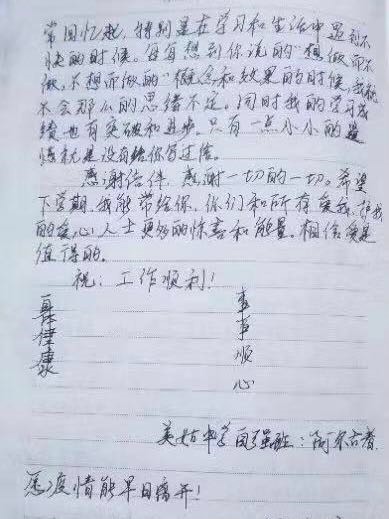 常回忆起，特别是在学习和生活中遇到不
快的时候。每每想到你说的"想做而不
做，不想而做的"概念和效果的时候，我就
不会那么的思绪不定。同时我的学习成
绩也有突破和进步。只有一点小小的遗
憾就是没有给你写过信。
感谢信件，感谢一切的一切。希望
下学期，我能带给你、你们和所有爱我、护我
的爱心人士更多的惊喜和能量。相信爱是
值得的。
祝：工作顺利！
身体健康
事事顺心
美姑中学自强班：阿尔古者
愿疫情能早日离开！